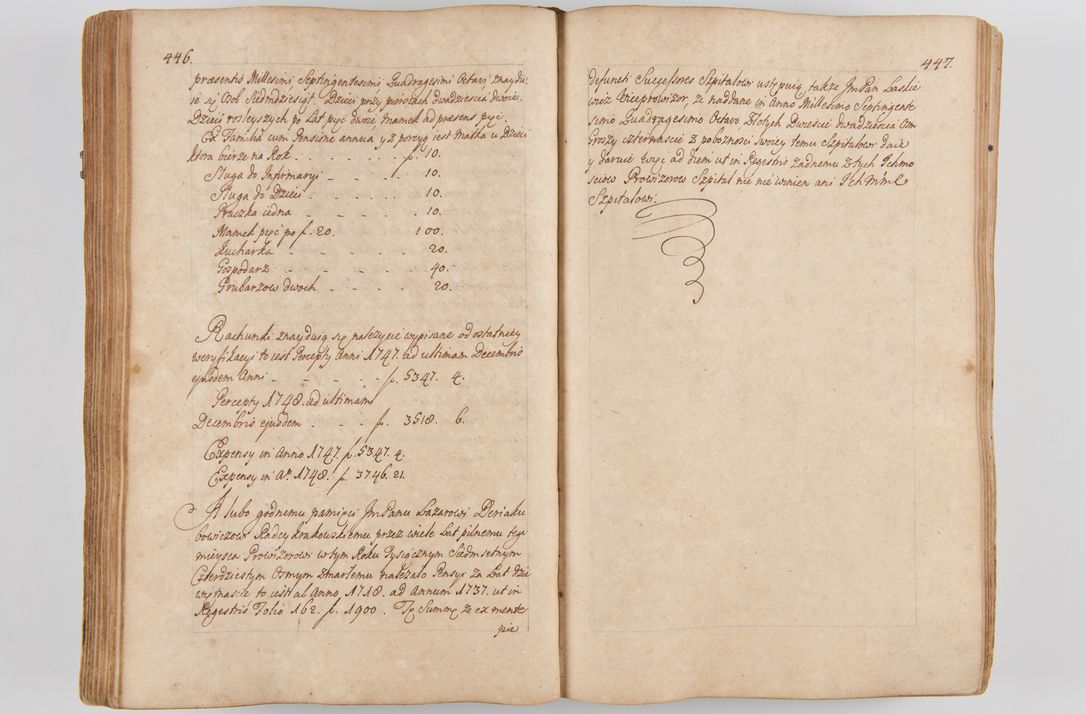 446.
præsentis Millesimi Septingentesimi Quadragesimi Octavi znaydu
ie się Osob Siedmdziesiąt. Dzieci przy piersiach dwadziescia dwoie.
Dzieci rosleyszych po Lat pyć dwoie Mamek ad præsens pyć.
Ex Familia cum Pensione annua, y z porcyą iest Matka u Dzieci
ktora bierze na Rok . - - - - f. 10.
Sługa do Infirmaryi - - - . 10.
Sługa do Dzieci . - - - - . 10.
Praczka iedna - - - - . 10.
Mamek pyć po f. 20. 100.
Kucharka - - - - . 20.
Gospodarz - - - - . 40.
Grubarzow dwoch - - - . 20.
Rachunki znayduią się należycie wypisane od ostatniey
weryfikacyi to iest Percepty Anni 1747. ad ultimam Decembris
ejusdem Anni - - - - - f. 5347. 4.
Percepty 1748. ad ultimam
Decembris ejusdem - - - f. 3518. 6.
Expensy in Anno 1747. f. 5347. 4.
Expensy in Aº 1748. f. 3746. 21.
A lubo godnemu pamięci JmPanu Łazarowi Deriaku
bowiczowi Radcy Krakowskiemu przez wiele Lat pilnemu tego
mieysca Prowizorowi w tym Roku Tysiącznym Siedmsetnym
Czterdziestym Osmym zmarłemu należało Pensyi za Lat dzie
więtnascie to iest ab Anno 1718. ad Annum 1737. ut in
Regestris Folio 162. f. 1900. Tę Summę że ex mente
447.
defuncti Successores Szpitalowi ustępuią, także JmPan Laskie
wicz Viceprowizor, że naddane in Anno Millesimo Septingente
simo Quadragesimo Octavo, Złotych Dwiescie dwadziescia Osm
Groszy czternascie z pobożności swoiey temu Szpitalowi daie
y daruie więc ad diem ut in Regestris żadnemu z tych Ichmo
sciow Prowizorow Szpital nic nie winien ani Ich Mm̃c
Szpitalowi.